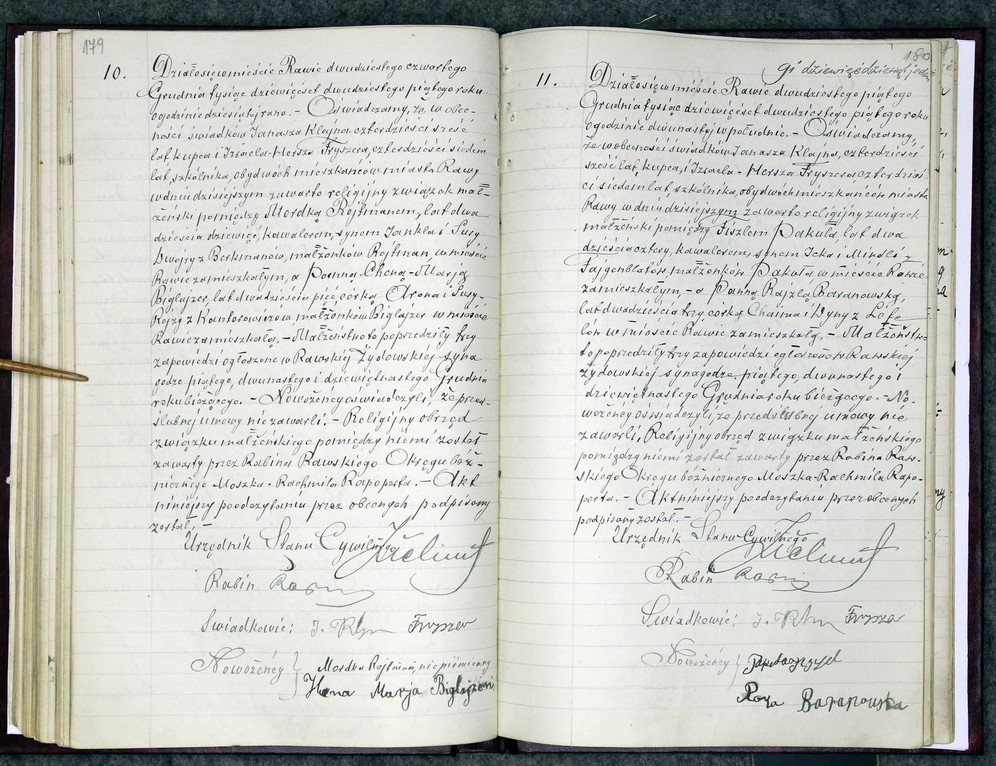 179
10.
Działo się w mieście Rawie dwudziestego czwartego
Grudnia tysiąc dziewięćset dwudziestego piątego roku
o godzinie dziesiątej rano. – Oświadczamy, że w obec-
ności świadków Janasza Klajna, czterdzieści sześć
lat, kupca i Izraela-Hersza Fryszera, czterdzieści siedem
lat, szkolnika, obydwóch mieszkańców miasta Rawy
w dniu dzisiejszym zawarto religijny związek mał-
żeński pomiędzy Mordką Rojtmanem, lat dwa
dzieścia dziewięć, kawalerem, synem Jankla i Sury
Dwojry z Berkmanów, małżonków Rojtman, w mieście
Rawie zamieszkałym, a Panną Cheną-Marją
Biglajzer, lat dwadzieścia pięć, córką Arona i Sury-
Rojzy z Kantorowiczów małżonków Biglajzer w mieście
Rawie zamieszkałą. – Małżeństwo to poprzedziły trzy
zapowiedzi ogłoszone w Rawskiej Żydowskiej syna
godze piątego, dwunastego i dziewiętnastego Grudnia
roku bieżącego. – Nowożeńcy oświadczyli, że przed-
ślubnej umowy nie zawarli. – Religijny obrzęd
związku małżeńskiego pomiędzy niemi został
zawarty przez Rabina Rawskiego Okręgu bóż-
niczego Moszka-Rachmila Rapoporta. – Akt
niniejszy po odczytaniu przez obecnych podpisany
został. –
Urzędnik Stanu Cywilnego
Rabin
Świadkowie: Fryszer
Nowożeńcy } Mordka Rojtman, niepiśmienny
Hena Marja Biglajzer
180
11.
Działo się w mieście Rawie dwudziestego piątego
Grudnia tysiąc dziewięćset dwudziestego piątego roku
o godzinie dwunastej w południe. – Oświadczamy,
że w obecności świadków Janasza Klajna, czterdzieści
sześć lat, kupca, i Izraela-Hersza Fryszera, czterdzieś-
ci siedem lat, szkolnika, obydwóch mieszkańców miasta
Rawy w dniu dzisiejszym zawarto religijny związek
małżeński pomiędzy Fiszlem Pakułą, lat dwa
dzieścia cztery, kawalerem, synem Icka i Mindli z
Fajgenblatów, małżonków Pakuła w mieście Rawie
zamieszkałym, – a Panną Rajzlą Baranowską,
lat dwadzieścia trzy, córką Chaima i Dyny z
w mieście Rawie zamieszkałą. – Małżeńst-
to poprzedziły trzy zapowiedzi ogłoszone w Rawskiej
żydowskiej synagodze, piątego, dwunastego i
dziewiętnastego Grudnia roku bieżącego. – No-
wożeńcy oświadczyli że przedślubnej umowy nie
zawarli, Religijny obrzęd związku małżeńskiego
pomiędzy niemi został zawarty przez Rabina Raw-
skiego Okręgu bóżniczego Moszka-Rachmila Rapo-
porta. – Akt niniejszy po odczytaniu przez obecnych
podpisany został. –
Urzędnik Stanu Cywilnego
Rabin
Świadkowie: Fryszer
Nowożeńcy {
Baranowska